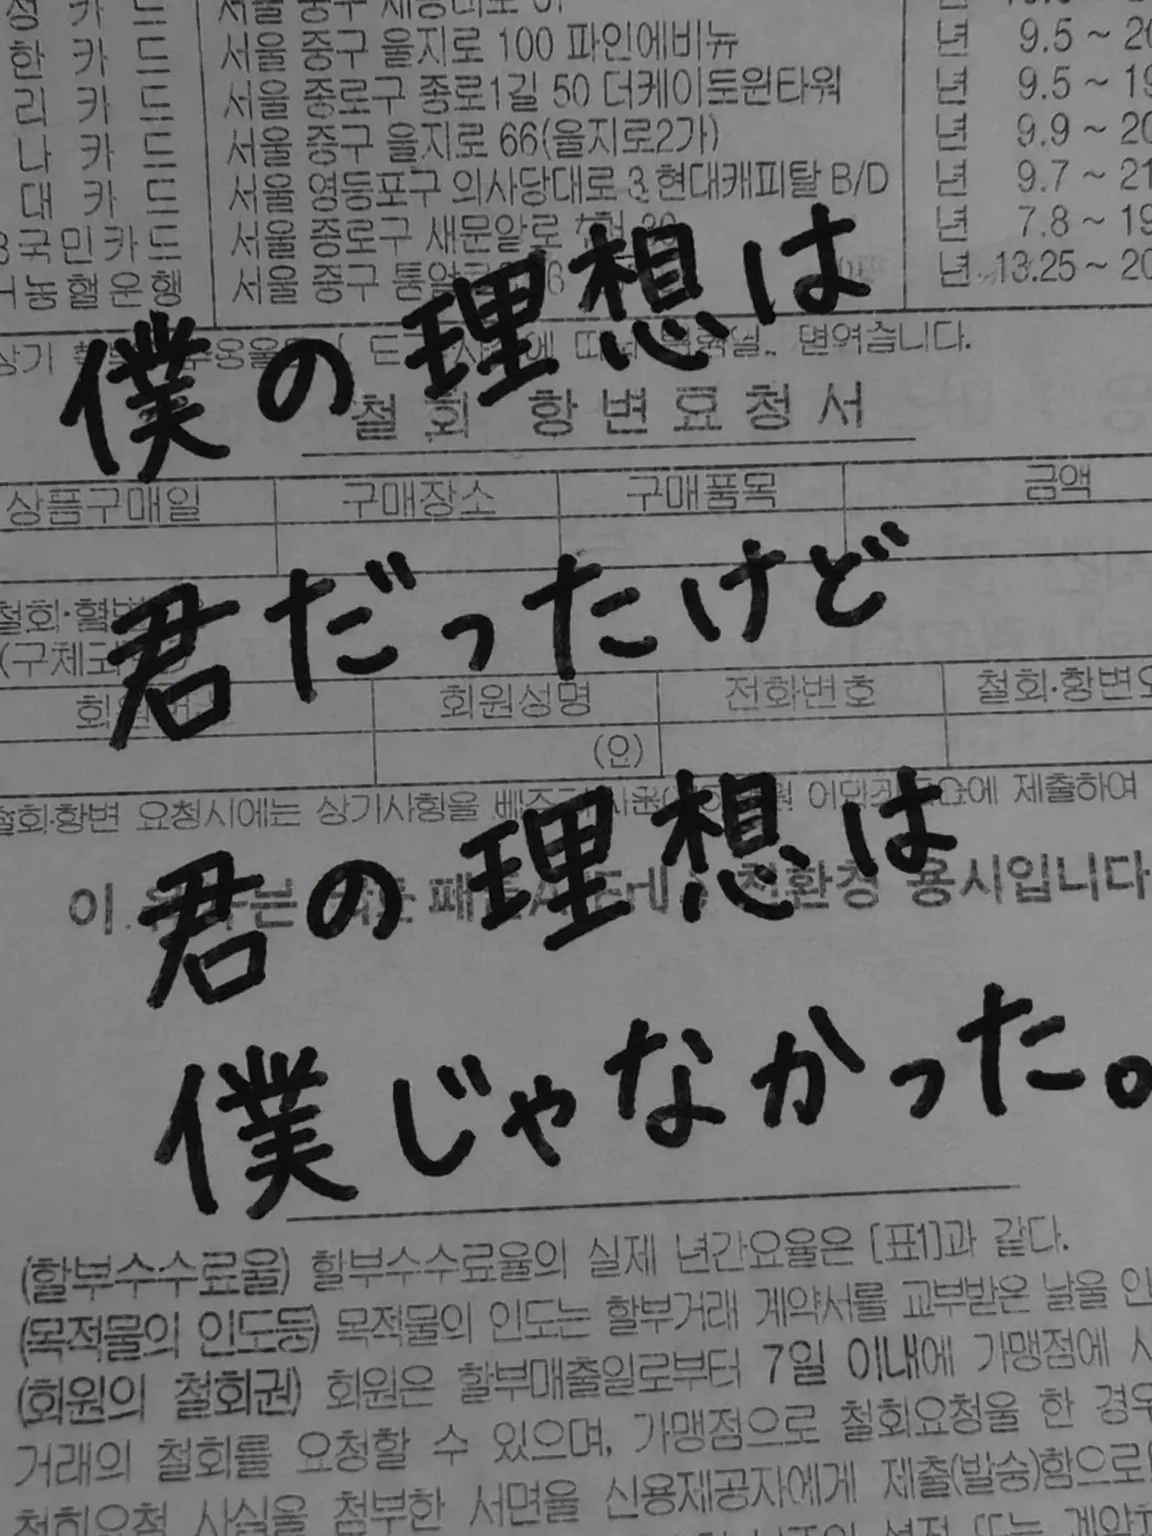 카드
서울 중구 을지로 100 파인에비뉴 년 9.5 ~ 20
한 카 드
서울 종로구 종로1길 50 더케이트윈타워 년 9.5 ~ 19
리 카 드
서울 중구 을지로 66(을지로2가) 년 9.9 ~ 20
나 카 드
서울 영등포구 의사당대로 3 현대캐피탈 B/D 년 9.7 ~ 21
대 카 드
서울 종로구 새문안로 년 7.8 ~ 19
국민카드
서울 중구 년 13.25 ~ 20
僕の理想は
철 회 항 변 요 청 서
상품구매일 구매장소 구매품목 금액
君だったけど
회원성명 전화번호 철회·항변요
(인)
철회·항변 요청시에는 상기사항을 제출하여
君の理想は
僕じゃなかった。
(할부수수료율) 할부수수료율의 실제 년간요율은 [표1]과 같다.
(목적물의 인도등) 목적물의 인도는 할부거래 계약서를 교부받은 날을 인
(회원의 철회권) 회원은 할부매출일로부터 7일 이내에 가맹점에 사
거래의 철회를 요청할 수 있으며, 가맹점으로 철회요청을 한 경우
철회요청 사실을 첨부한 서면을 신용제공자에게 제출(발송)함으로